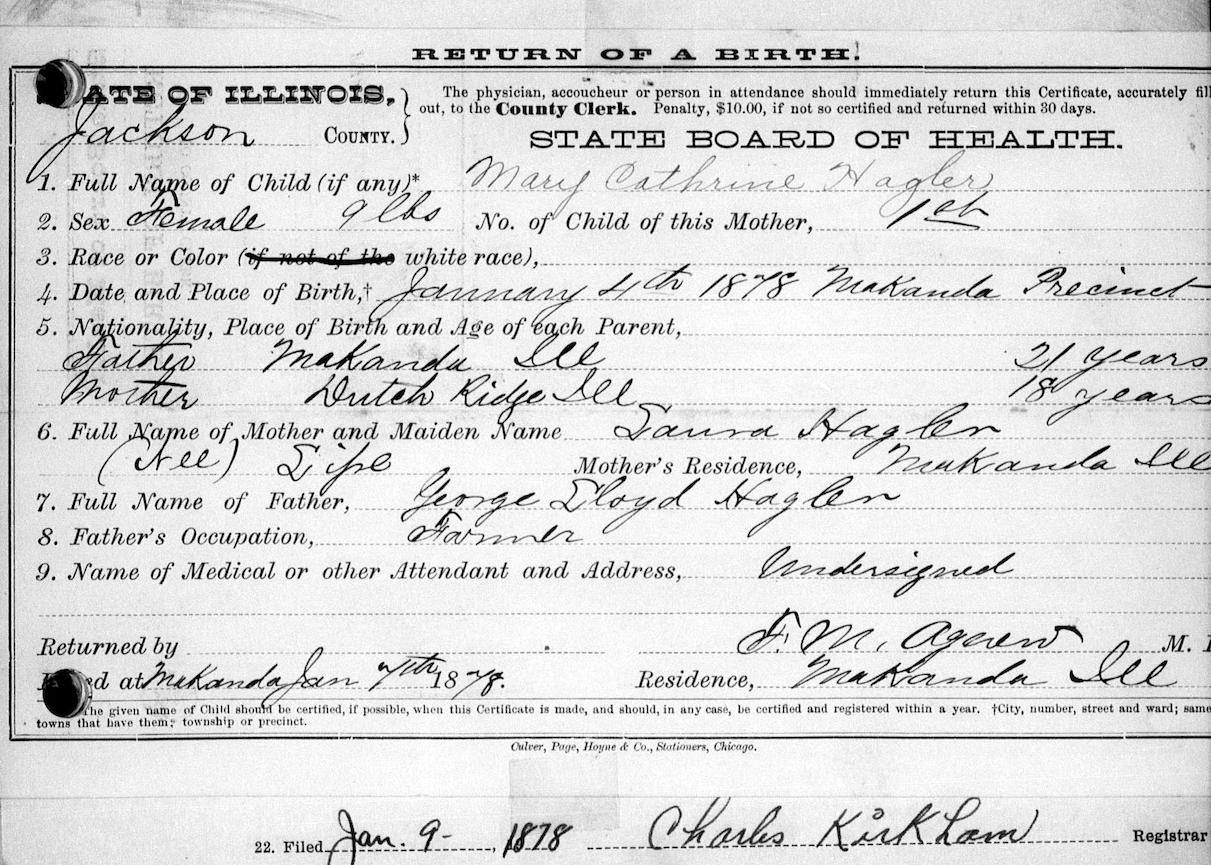 RETURN OF A BIRTH.
STATE OF ILLINOIS,
The physician, accoucheur or person in attendance should immediately return this Certificate, accurately fill
out, to the County Clerk. Penalty, $10.00, if not so certified and returned within 30 days.
Jackson COUNTY.
STATE BOARD OF HEALTH.
1. Full Name of Child (if any)* Mary Cathrine Hagler
2. Sex Female 9 lbs No. of Child of this Mother, 1st
3. Race or Color (if not of the white race),
4. Date and Place of Birth,† January 4th 1878 Makanda Precinct
5. Nationality, Place of Birth and Age of each Parent,
Father Makanda Ill 21 years
Mother Dutch Ridge Ill 18 years
6. Full Name of Mother and Maiden Name Laura Hagler
(Nee) Lipe Mother's Residence, Makanda Ill
7. Full Name of Father, George Lloyd Hagler
8. Father's Occupation, Farmer
9. Name of Medical or other Attendant and Address, Undersigned
Returned by F. M. Agnew M.
at Makanda Jan 7th 1878. Residence, Makanda Ill
The given name of Child should be certified, if possible, when this Certificate is made, and should, in any case, be certified and registered within a year. †City, number, street and ward; same
towns that have them; township or precinct.
Culver, Page, Hoyne & Co., Stationers, Chicago.
22. Filed Jan. 9- , 1878 Charles Kirkham Registrar